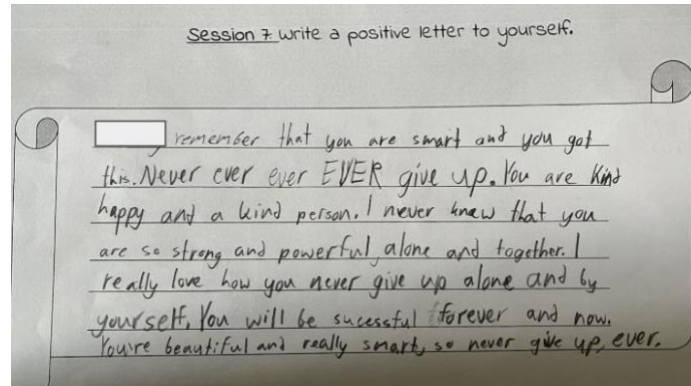 Session 7 write a positive letter to yourself.
remember that you are smart and you got
this. Never ever ever EVER give up. You are kind
happy and a kind person. I never knew that you
are so strong and powerful alone and together. I
really love how you never give up alone and by
yourself, You will be sucessful forever and now.
You're beautiful and really smart, so never give up, ever.